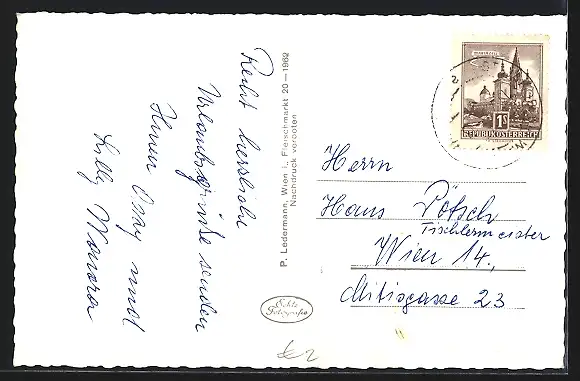 Recht herzliche
Urlaubsgrüße senden
Ihnen Ossy und
Lilly
P. Ledermann, Wien I., Fleischmarkt 20 — 1962
Nachdruck verboten
Echte
Fotografie
MARIAZELL
1S
REPUBLIK ÖSTERREICH
Herrn
Hans Pötsch
Tischlermeister
Wien 14,
Mitisgasse 23